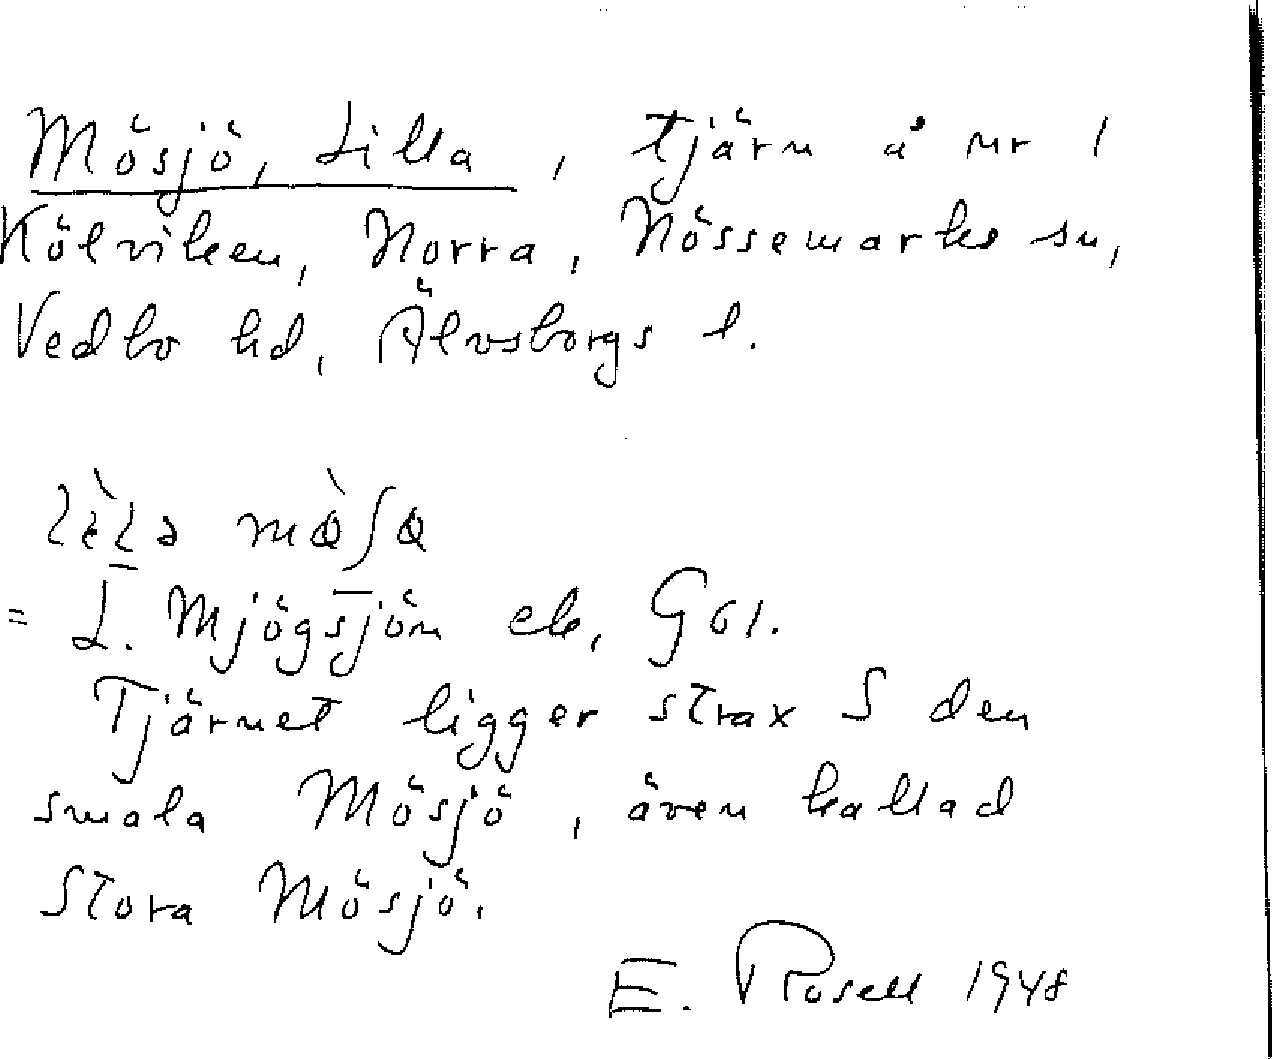 Mösjö, Lilla, tjärn å nr 1
Kölviken, Norra, Nössemarks sn,
Vedbo hd, Älvsborgs l.
= L. Mjögsjön ek, G61.
Tjärnet ligger strax S den
smala Mösjö, även kallad
Stora Mösjö.
E. Rosell 1948